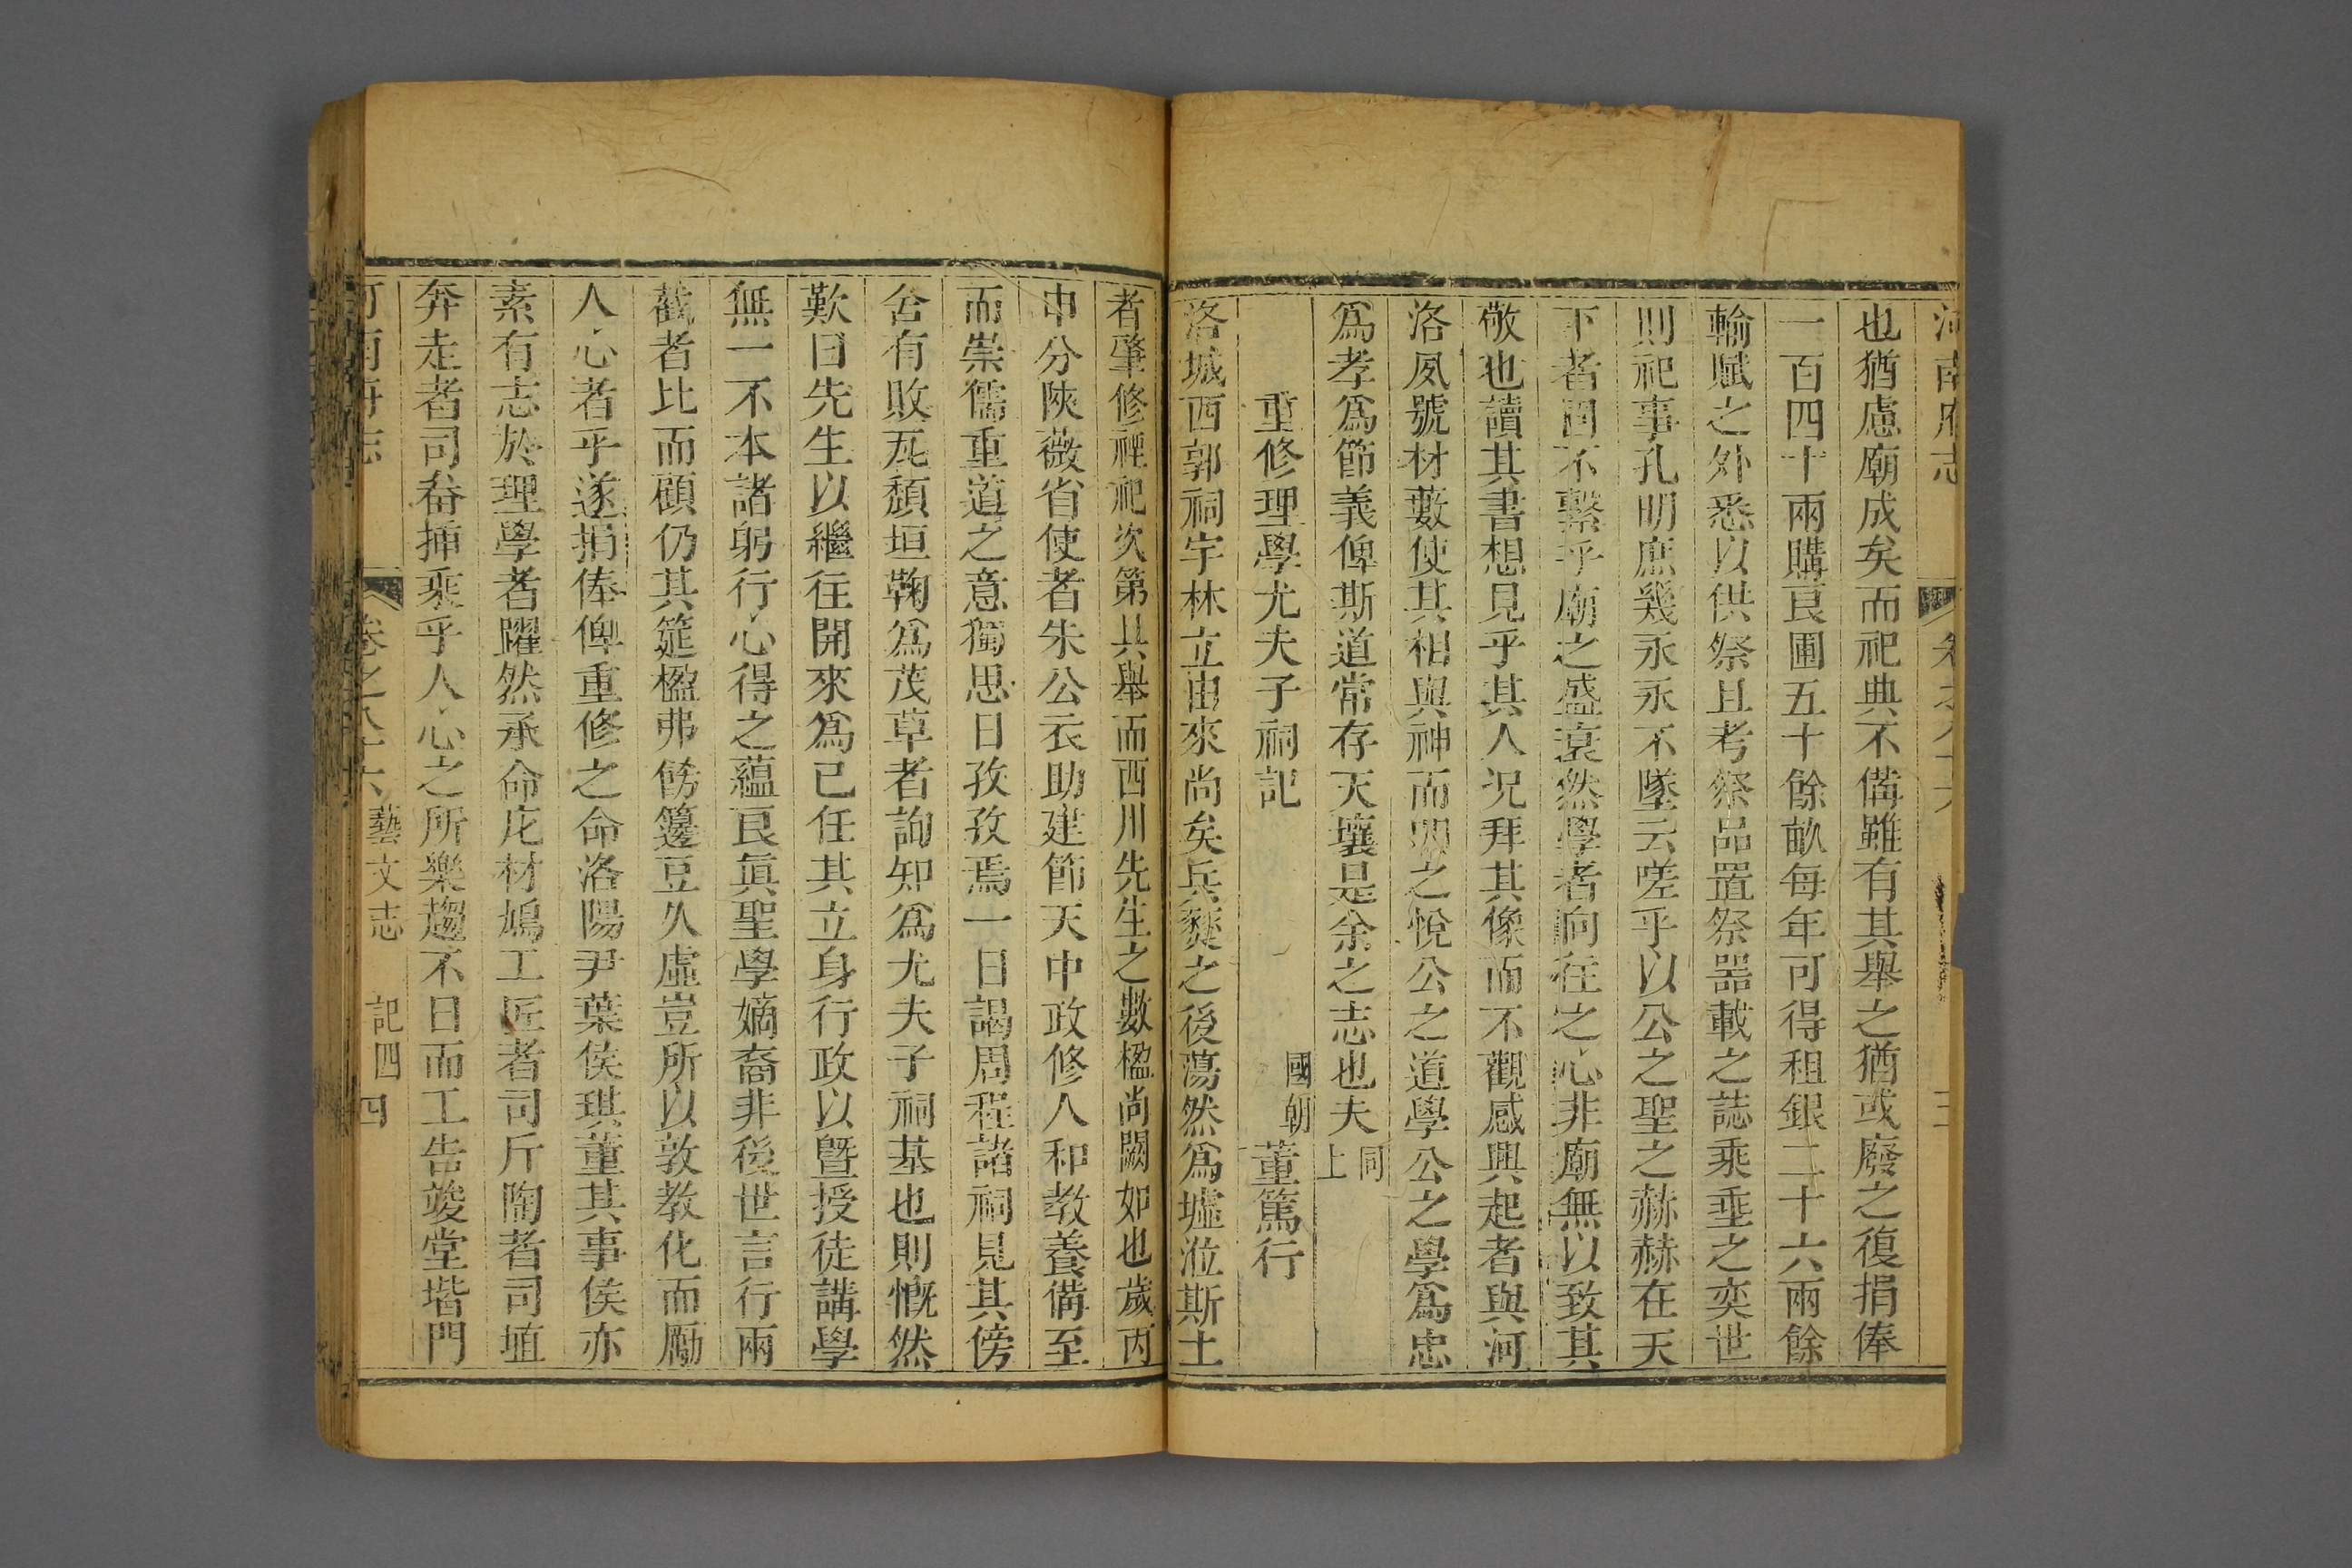 也猶慮廟成矣而祀典不備雖有其舉之猶或廢之復捐俸
一百四十兩購良圃五十餘畝每年可得租銀二十六兩餘
輸賦之外悉以供祭且考祭品置祭器載之誌乘垂之奕世
則祀事孔明庶幾永永不墜云嗟乎以公之聖之赫赫在天
下者固不繫乎廟之盛衰然學者向往之心非廟無以致其
敬也讀其書想見乎其人況拜其像而不觀感興起者與河
洛夙號材藪使其相與神而明之悅公之道學公之學爲忠
爲孝爲節義俾斯道常存天壤是余之志也夫 同上
重修理學尤夫子祠記 國朝 董篤行
洛城西郭祠宇林立由來尚矣兵燹之後蕩然爲墟涖斯土
者肇修禋祀次第具舉而西川先生之數楹尚闕如也歲丙
申分陝薇省使者朱公衣助建節天中政修人和教養備至
而崇儒重道之意獨思日孜孜焉一日謁周程諸祠見其傍
舍有敗瓦頹垣鞠爲茂草者詢知爲尤夫子祠基也則慨然
歎曰先生以繼往開來爲已任其立身行政以曁授徒講學
無一不本諸躬行心得之蘊良眞聖學嫡裔非後世言行兩
截者比而顧仍其筵楹弗飭籩豆久虛豈所以敦教化而勵
人心者乎遂捐俸俾重修之命洛陽尹葉侯琪董其事侯亦
素有志於理學者躍然承命庀材鳩工匠者司斤陶者司埴
奔走者司畚揷乘乎人心之所樂趨不日而工告竣堂堦門
河南府志 卷之八十六 藝文志 記四 四